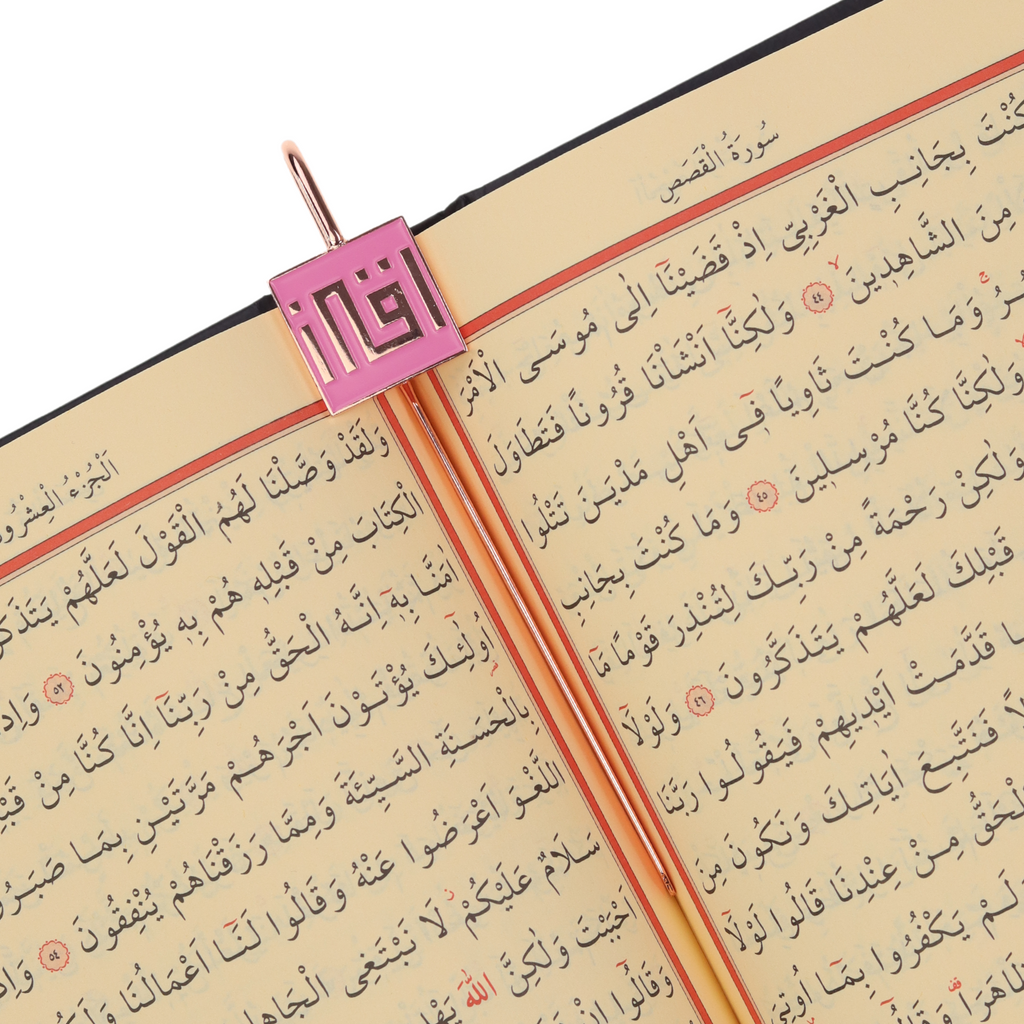 اقرأ
سُورَةُ الْقَصَصِ
كُنْتَ بِجَانِبِ الْغَرْبِيِّ اِذْ قَضَيْنَٓا اِلٰى مُوسَى الْاَمْرَ
مِنَ الشَّاهِدِينَ ﴿٤٤﴾ وَلٰكِنَّٓا اَنْشَأْنَا قُرُونًا فَتَطَاوَلَ
وَمَا كُنْتَ ثَاوِيًا فِٓى اَهْلِ مَدْيَنَ تَتْلُوا
وَلٰكِنَّا كُنَّا مُرْسِلِينَ ﴿٤٥﴾ وَمَا كُنْتَ بِجَانِبِ
وَلٰكِنْ رَحْمَةً مِنْ رَبِّكَ لِتُنْذِرَ قَوْمًا مَٓا
قَبْلِكَ لَعَلَّهُمْ يَتَذَكَّرُونَ ﴿٤٦﴾ وَلَوْلَٓا
قَدَّمَتْ اَيْدِيهِمْ فَيَقُولُوا رَبَّنَا
فَنَتَّبِعَ اٰيَاتِكَ وَنَكُونَ مِنَ
الْحَقُّ مِنْ عِنْدِنَا قَالُوا لَوْلَٓا
لَمْ يَكْفُرُوا بِمَٓا اُوتِىَ
اَلْجُزْءُ الْعِشْرُونَ
وَلَقَدْ وَصَّلْنَا لَهُمُ الْقَوْلَ لَعَلَّهُمْ
الْكِتَابَ مِنْ قَبْلِهٖ هُمْ بِهٖ يُؤْمِنُونَ ﴿٥٢﴾
اٰمَنَّا بِهٖٓ اِنَّهُ الْحَقُّ مِنْ رَبِّنَٓا اِنَّا كُنَّا مِنْ
اُو۬لٰٓئِكَ يُؤْتَوْنَ اَجْرَهُمْ مَرَّتَيْنِ بِمَا صَبَرُوا
بِالْحَسَنَةِ السَّيِّئَةَ وَمِمَّا رَزَقْنَاهُمْ يُنْفِقُونَ ﴿٥٤﴾
اللَّغْوَ اَعْرَضُوا عَنْهُ وَقَالُوا لَنَٓا اَعْمَالُنَا
سَلَامٌ عَلَيْكُمْ لَا نَبْتَغِى
اَحْبَبْتَ وَلٰكِنَّ اللّٰهَ
وَقَالُٓوا اِنْ